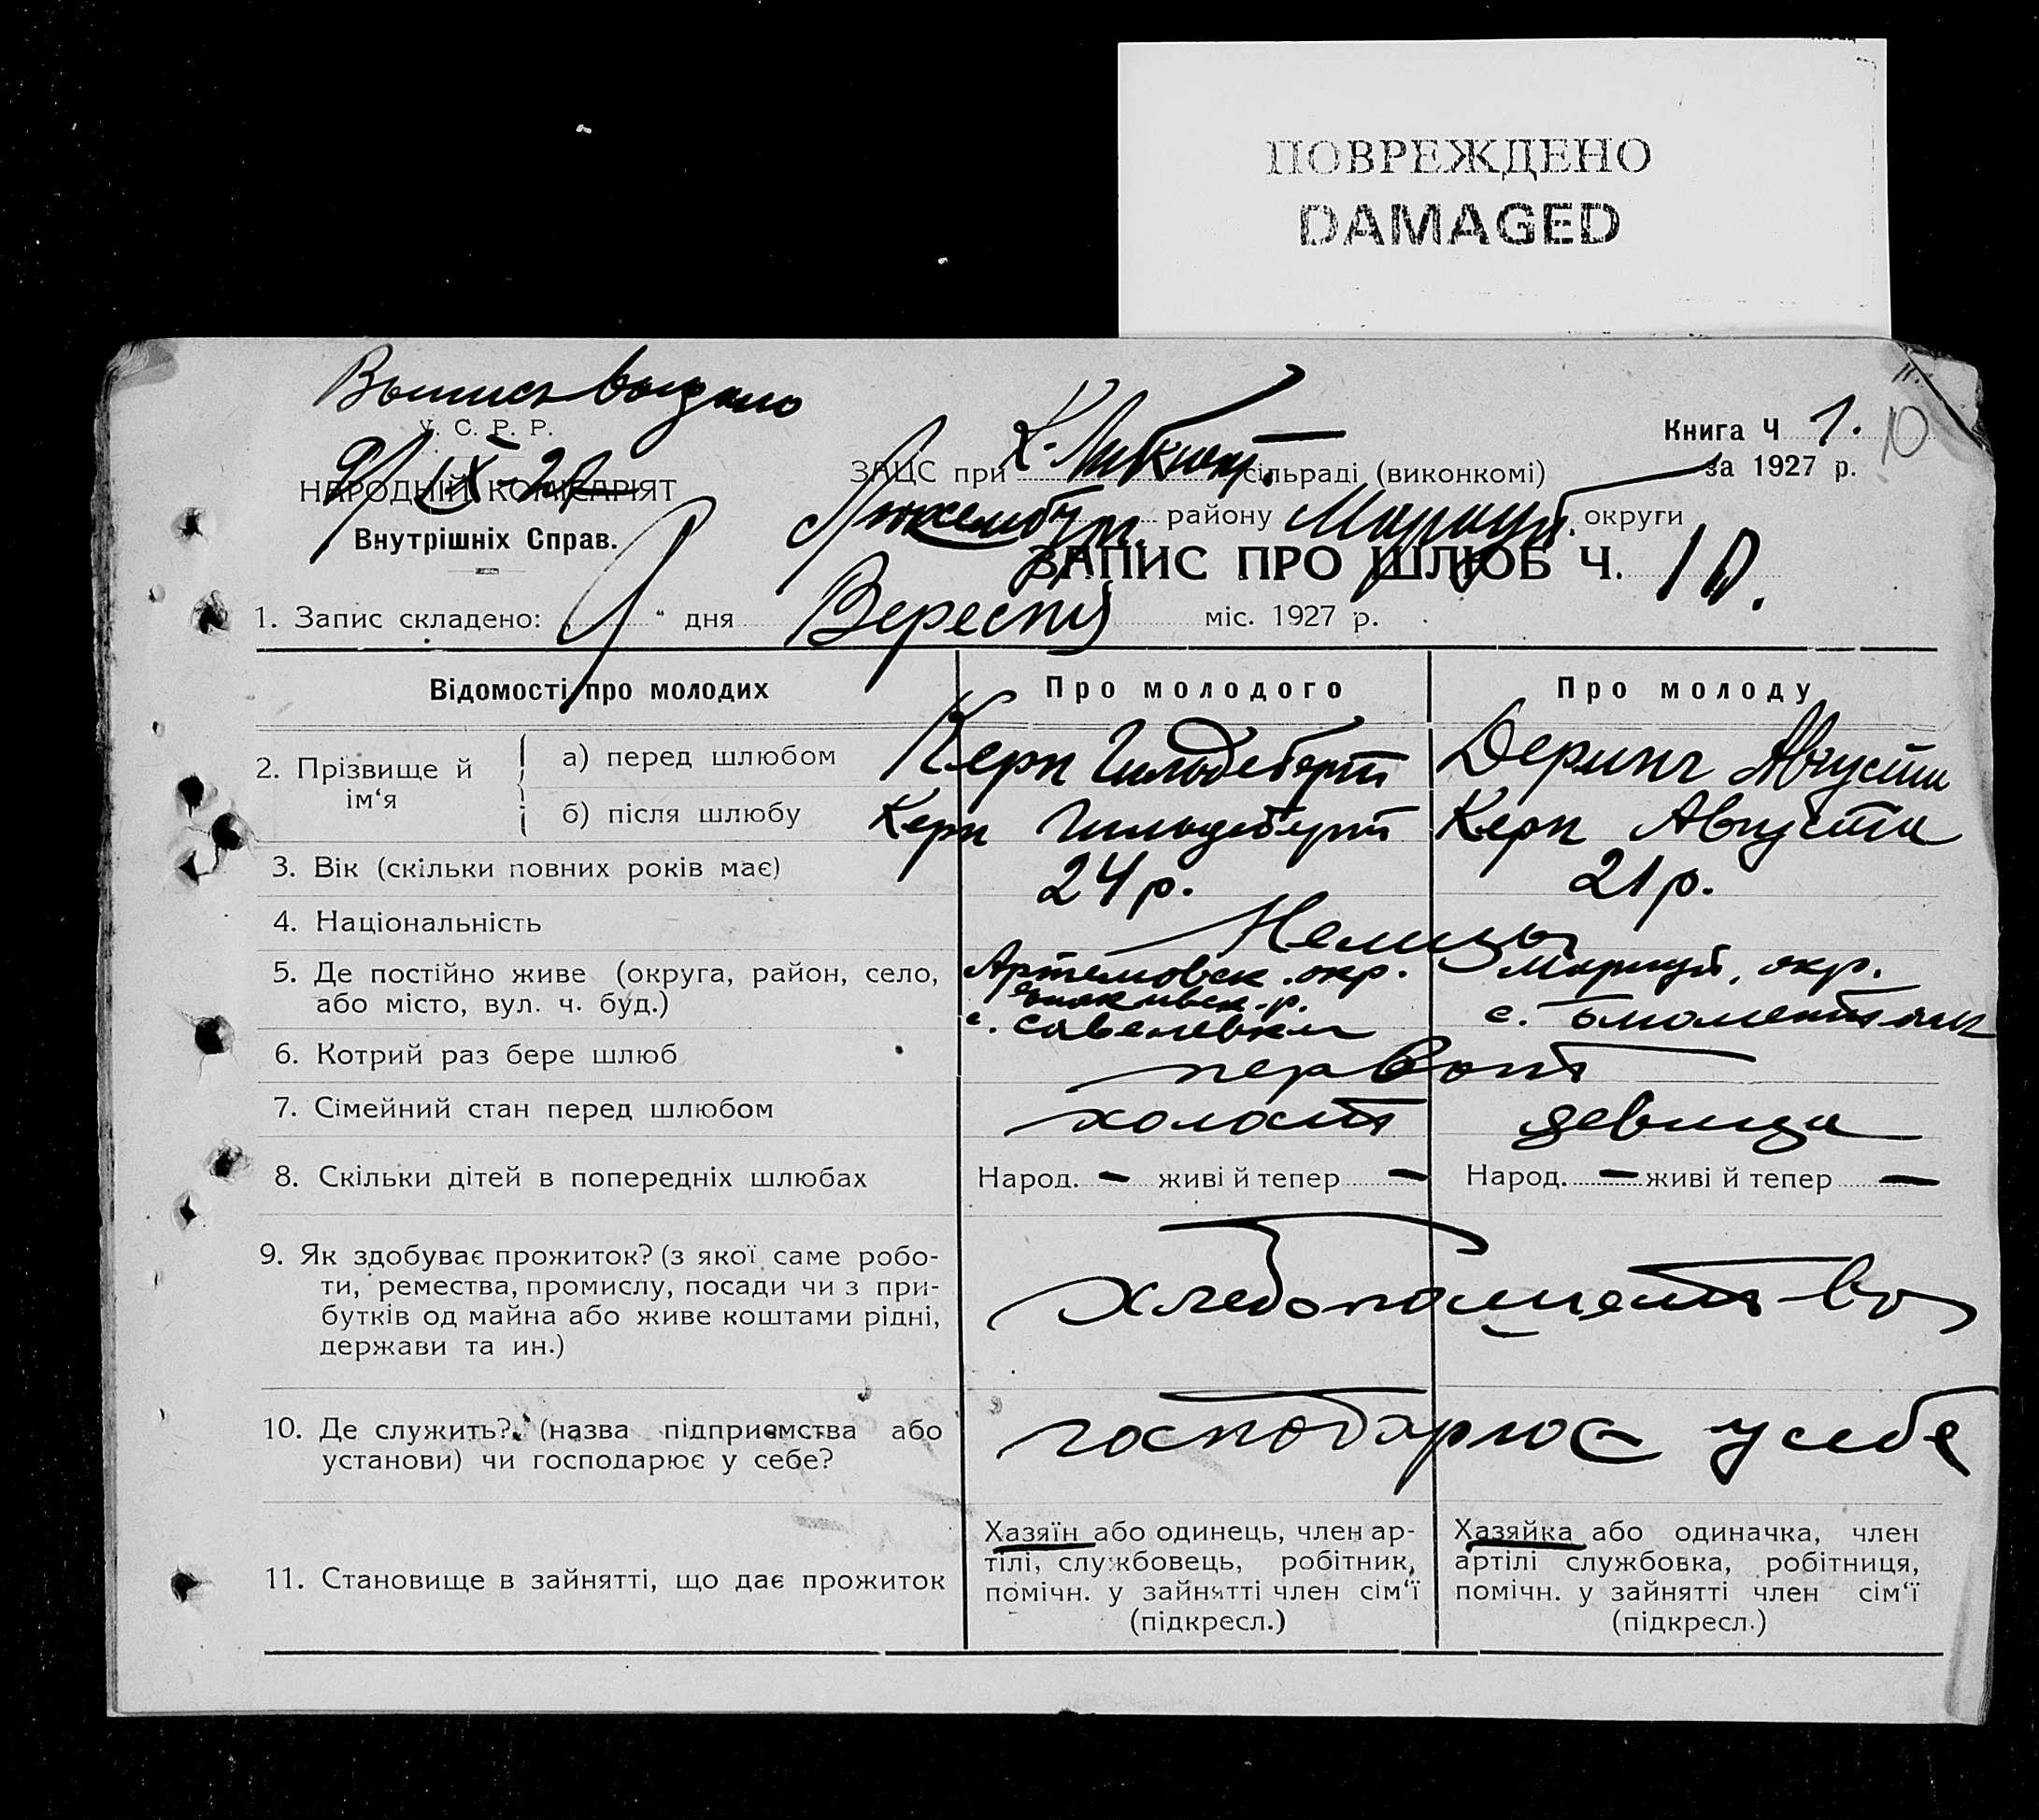 ПОВРЕЖДЕНО
DAMAGED
Выпись выдано
У. С. Р. Р.
9/IX-27
НАРОДНІЙ КОМІСАРІЯТ
Внутрішніх Справ.
Книга Ч 1. 10
за 1927 р.
ЗАЦС при К-Либкнехт. сільраді (виконкомі)
Люксембур. району Мариуп. округи
ЗАПИС ПРО ШЛЮБ Ч. 10.
1. Запис складено: 9 " дня Вересня міс. 1927 р.
Відомості про молодих
Про молодого
Про молоду
2. Прізвище й ім‘я
а) перед шлюбом Керн Гильдеберт Деринг Августа
б) після шлюбу Керн Гильдеберт Керн Августа
3. Вік (скільки повних років має) 24 р. 21 р.
4. Національність Немцы
5. Де постійно живе (округа, район, село,
або місто, вул. ч. буд.)
Артемовск. окр.
р.
с. Савелевка
Мариуп. окр.
с.
6. Котрий раз бере шлюб
7. Сімейний стан перед шлюбом холост девица
8. Скільки дітей в попередніх шлюбах Народ. — живі й тепер — Народ. — живі й тепер —
9. Як здобуває прожиток? (з якої саме робо-
ти, ремества, промислу, посади чи з при-
бутків од майна або живе коштами рідні,
держави та ин.)
хлебопашество
10. Де служить? (назва підприємства або
установи) чи господарює у себе?
господарює у себе
11. Становище в зайнятті, що дає прожиток
Хазяїн або одинець, член ар-
тілі, службовець, робітник,
помічн. у зайнятті член сім‘ї
(підкресл.)
Хазяйка або одиначка, член
артілі службовка, робітниця,
помічн. у зайнятті член сім‘ї
(підкресл.)